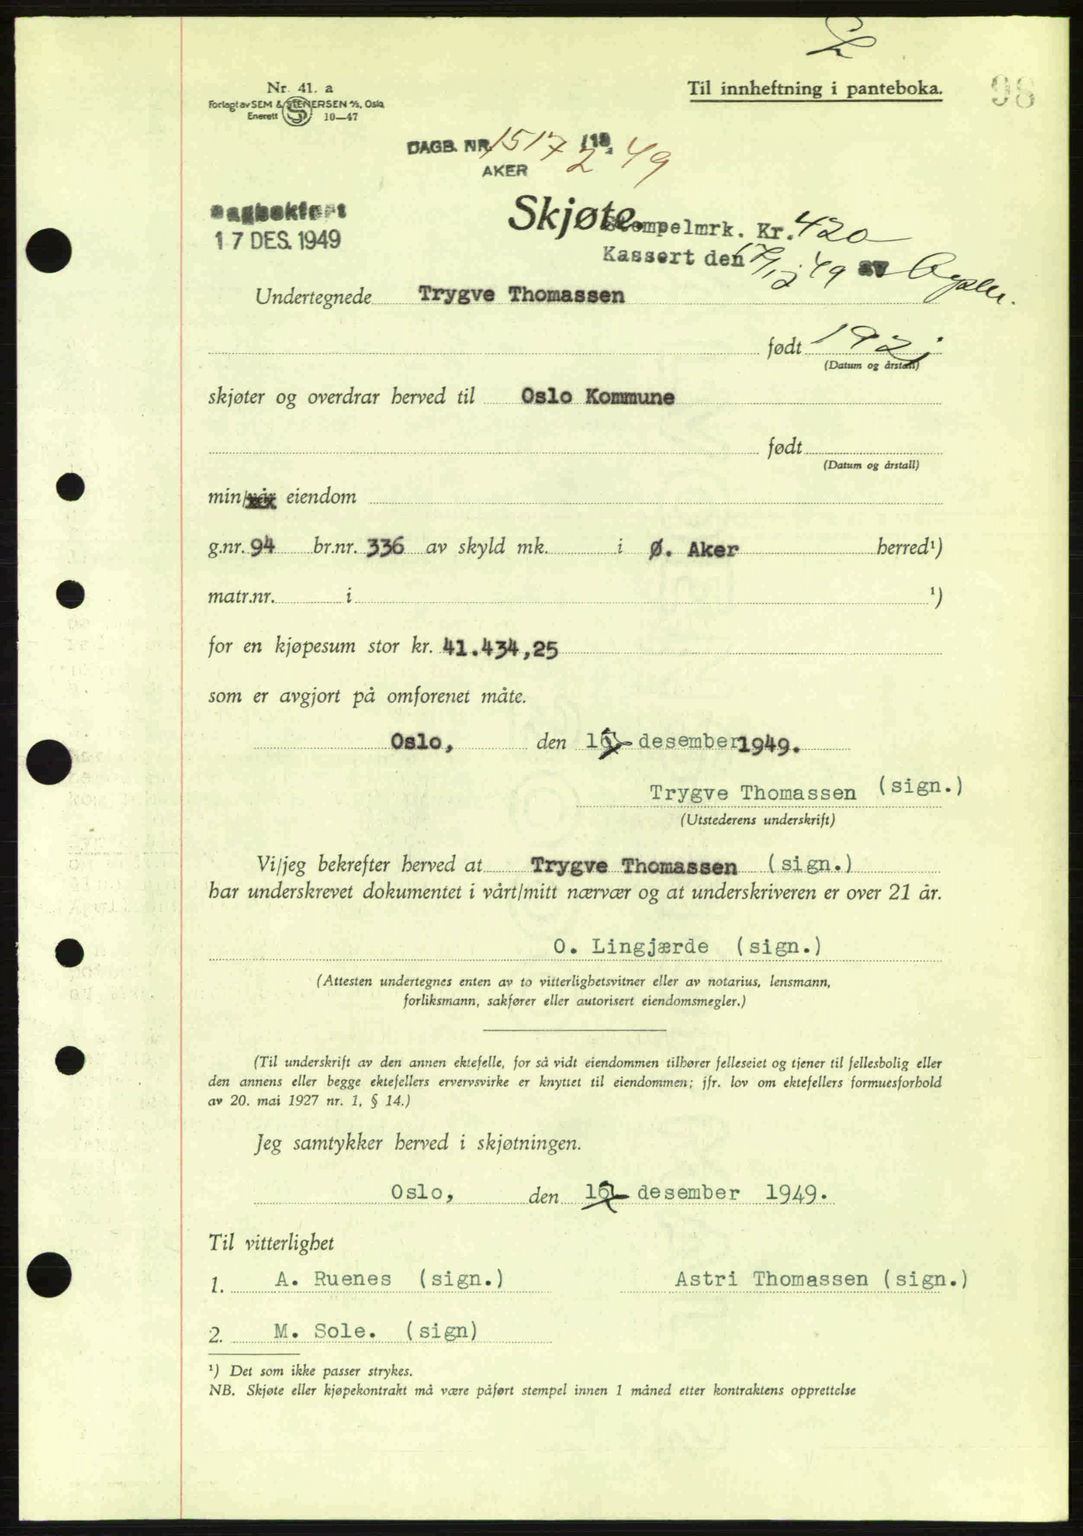 Nr. 41. a
Forlagt av SEM & STENERSEN A/S, Oslo
Enerett 10—47
Til innheftning i panteboka.
98
DAGB. NR. 15172 19 49
AKER
Dagbokført
17 DES. 1949
Skjøte.
Stempelmrk. Kr. 420
Kassert den 17/12 49 av
Undertegnede Trygve Thomassen
født 1921
(Datum og årstall)
skjøter og overdrar herved til Oslo Kommune
født
(Datum og årstall)
min/vår eiendom
g.nr. 94 br.nr. 336 av skyld mk. i Ø. Aker herred¹)
matr.nr. i ¹)
for en kjøpesum stor kr. 41.434,25
som er avgjort på omforenet måte.
Oslo, den 16 desember 1949.
Trygve Thomassen (sign.)
(Utstederens underskrift)
Vi/jeg bekrefter herved at Trygve Thomassen (sign.)
har underskrevet dokumentet i vårt/mitt nærvær og at underskriveren er over 21 år.
O. Lingjærde (sign.)
(Attesten undertegnes enten av to vitterlighetsvitner eller av notarius, lensmann,
forliksmann, sakfører eller autorisert eiendomsmegler.)
(Til underskrift av den annen ektefelle, for så vidt eiendommen tilhører felleseiet og tjener til fellesbolig eller
den annens eller begge ektefellers ervervsvirke er knyttet til eiendommen; jfr. lov om ektefellers formuesforhold
av 20. mai 1927 nr. 1, § 14.)
Jeg samtykker herved i skjøtningen.
Oslo, den 16 desember 1949.
Til vitterlighet
1. A. Ruenes (sign.) Astri Thomassen (sign.)
2. M. Sole. (sign)
¹) Det som ikke passer strykes.
NB. Skjøte eller kjøpekontrakt må være påført stempel innen 1 måned etter kontraktens opprettelse